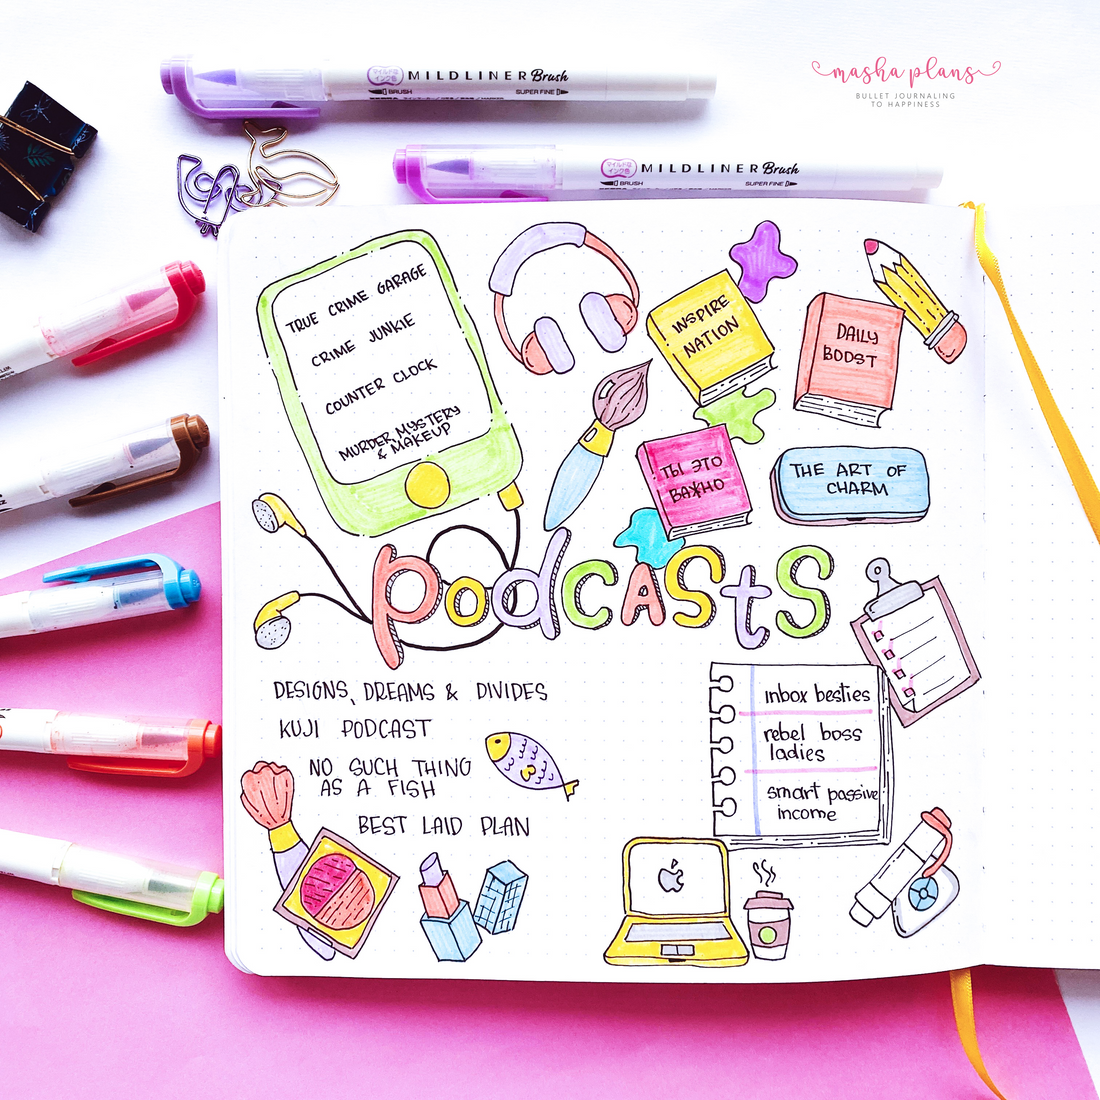 MILDLINER Brush
BRUSH SUPER FINE
masha plans
BULLET JOURNALING
TO HAPPINESS
MILDLINER Brush
BRUSH SUPER FINE
TRUE CRIME GARAGE
CRIME JUNKIE
COUNTER CLOCK
MURDER, MYSTERY
& MAKEUP
INSPIRE
NATION
DAILY
BOOST
ТЫ ЭТО
ВАЖНО
THE ART OF
CHARM
PodcAStS
DESIGNS, DREAMS & DIVIDES
KUJI PODCAST
NO SUCH THING
AS A FISH
BEST LAID PLAN
inbox besties
rebel boss
ladies
smart passive
income